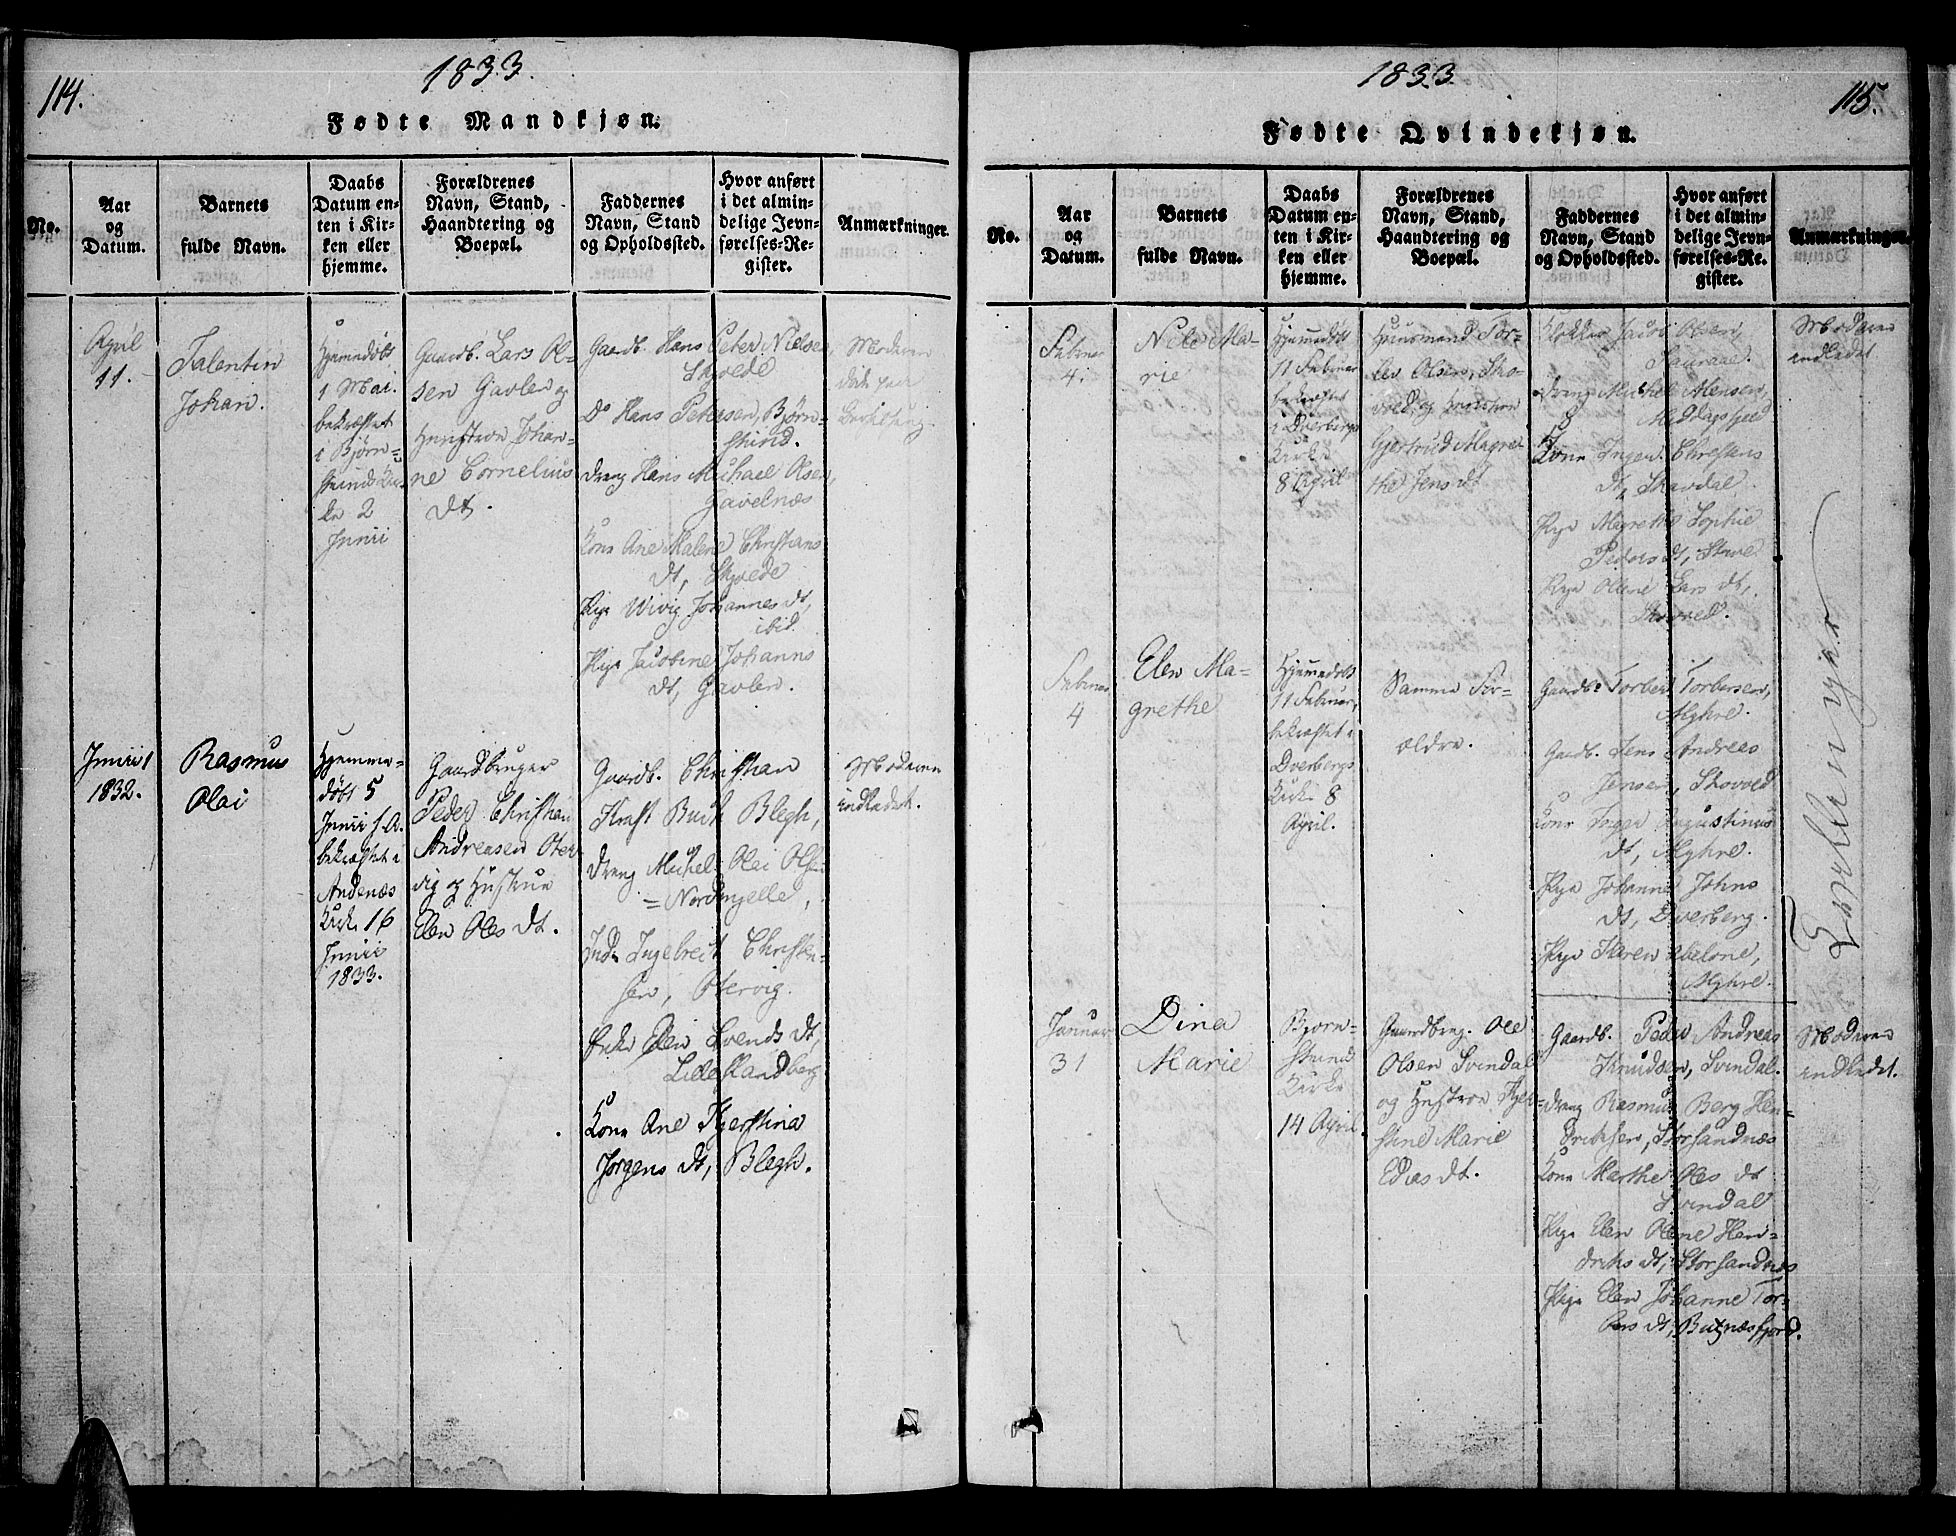 114.
1833.
Fødte Mandkjøn.
No.
Aar
og
Datum.
Barnets
fulde Navn.
Daabs
Datum en-
ten i Kir-
ken eller
hjemme.
Forældrenes
Navn, Stand,
Haandtering og
Boepæl.
Faddernes
Navn, Stand
og Opholdssted.
Hvor anført
i det almin-
delige Jevn-
førelses-Re-
gister.
Anmærkninger.
April
11.
Talentin
Johan.
Hjemmedøbt
1 Mai.
bekræftet
i Bjørn-
skinds Kir-
ke 2
Junii
Gaardb. Lars Ol-
sen Gavlen og
Hustroe Johan-
ne Cornelius
dt.
Gaardb. Hans Peter Nielsen,
Skjvede
Do Hans Petersen, Bjørn-
skind.
dreng Hans Michael Olsen,
Gavelnæs
Kone Ane Malene Christians
dt, Skjvede
Pige Wivig Johannes dt,
ibid.
Pige Jacobine Johanns
dt, Gavlen.
Moderen
død paa
Junii 1
1832.
Rasmus
Olai
Hjemme-
døbt 5
Junii f. A.
bekræftet i
Andenæs
Kirke 16
Junii
1833.
Gaardbruger
Peder Christian
Andreasen Oter-
vig og Hustrue
Elen Oles dt.
Gaardb. Christian
Kraft Buch Blegh,
dreng Michel Olai Olsen
Nordmjelle,
Inds. Ingebreit Christen-
sen, Otervig.
Enke Elen Svends dt,
Lille Standberg
Kone Ane Kjerstina
Jørgens dt, Blegh.
Moderen
indledet.
1833.
115.
Fødte Qvindekjøn.
No.
Aar
og
Datum.
Barnets
fulde Navn.
Daabs
Datum en-
ten i Kir-
ken eller
hjemme.
Forældrenes
Navn, Stand,
Haandtering og
Boepæl.
Faddernes
Navn, Stand
og Opholdssted.
Hvor anført
i det almin-
delige Jevn-
førelses-Re-
gister.
Anmærkninger.
Februar
4.
Nele Ma-
rie
Hjemmedøbt
11 Februar
bekræftet
i Dverbergs
Kirke
8 April
Huusmand Tor-
lev Olsen, Sko-
vold, og Hustroe
Gjertrud Magre-
the Jens dt
Klokker Jacob Olsen,
dreng Michel Mensen,
Middagsfjeld
Kone Inger Christens
dt, Skavdal.
Pige Magrethe Sophie
Peders dt, Stave
Pige Olene Lars dt,
Skovold.
Moderen
indledet
Februar
4
Elen Ma-
grethe
Hjemmedøbt
11 Februar,
bekræftet i
Dverbergs
Kirke 8
April.
Samme For-
ældre.
Gaardb. Torber Torbersen,
Myhre.
Gaardb. Jens Andreas
Jensen, Skovold
Kone Inger Augustinus
dt, Myhre.
Pige Johanne Johns
dt, Dverberg.
Pige Karen Abelone,
Myhre.
Tvillingsøstre
Januar
31
Dina
Marie
Bjørn-
skind
Kirke
14 April.
Gaardbrug. Ole
Olsen Svindal
og Hustroe Kjer-
stine Marie
Edies dt.
Gaardb. Peder Andreas
Knudsen, Svindal.
dreng Rasmus Berg Hen-
driksen, Storsandnæs
Kone Marthe Oles dt
Svindal
Pige Elen Olene Hen-
driks dt, Storsandnæs
Pige Elen Johanne Tor-
bers dt, Buknæsfjord.
Moderen
indledet.